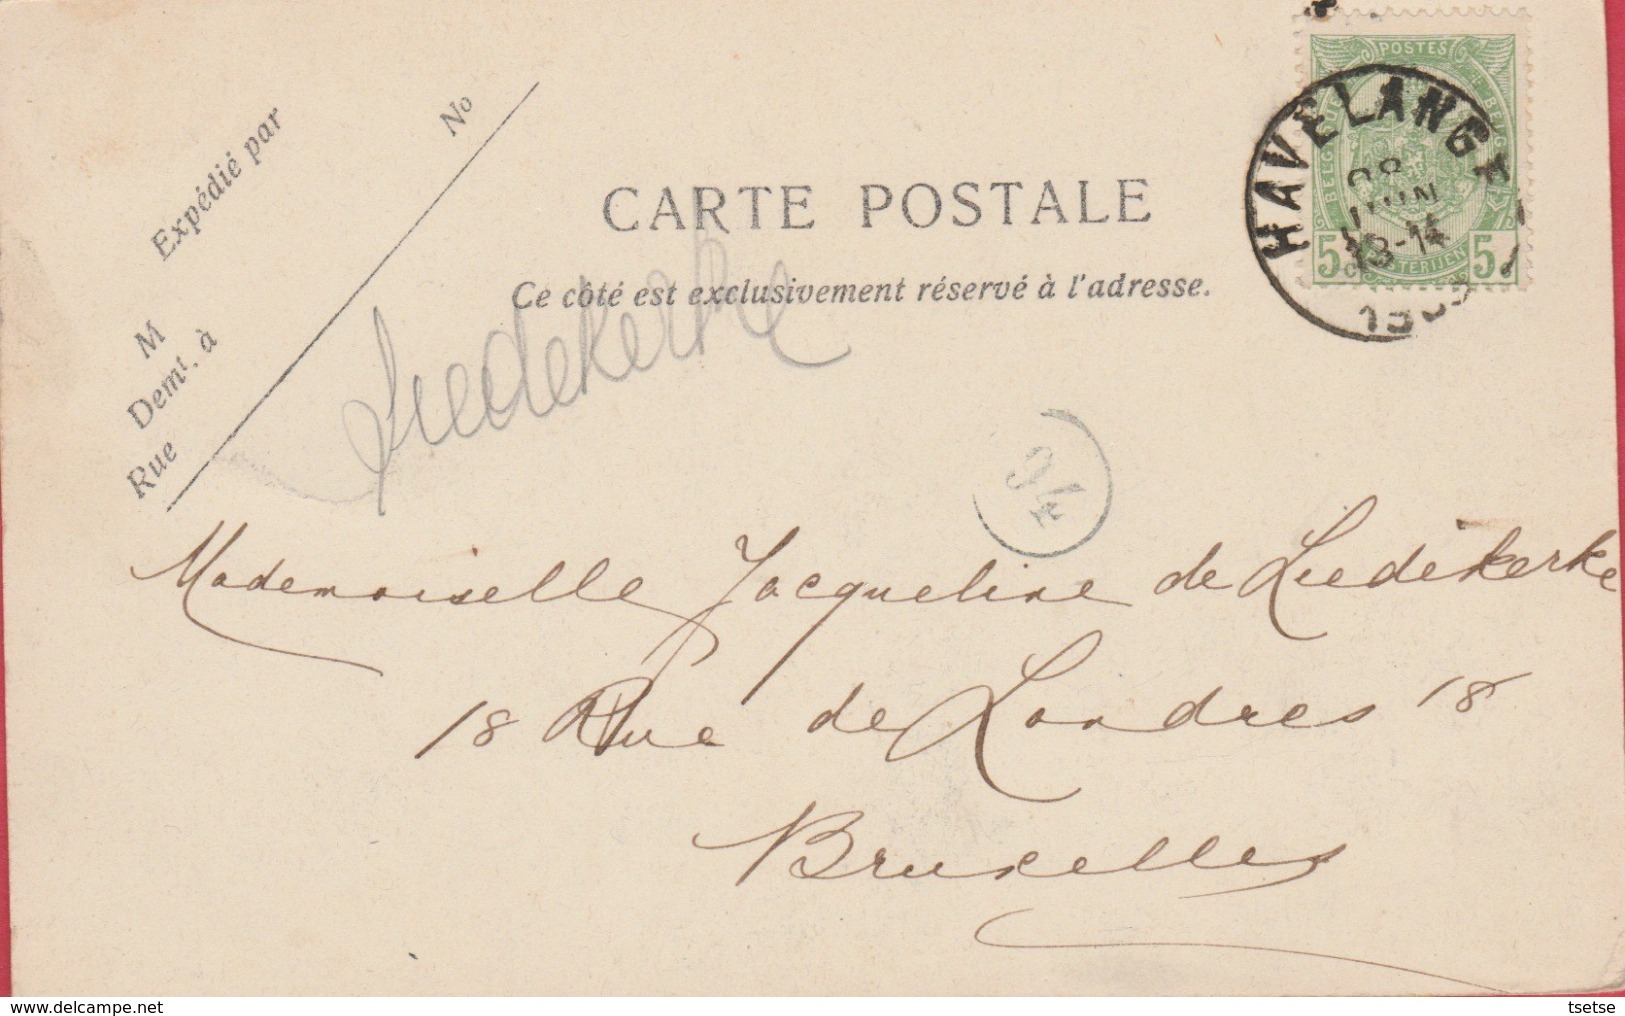 Expédié par
No
M
Demt. à
Rue
CARTE POSTALE
Ce côté est exclusivement réservé à l'adresse.
Liedekerke
POSTES
5 5
HAVELANGE
JUIN
13-14
94
Mademoiselle Jacqueline de Liedekerke
18 Rue de Londres 18
Bruxelles
delcampe.net
tsetse